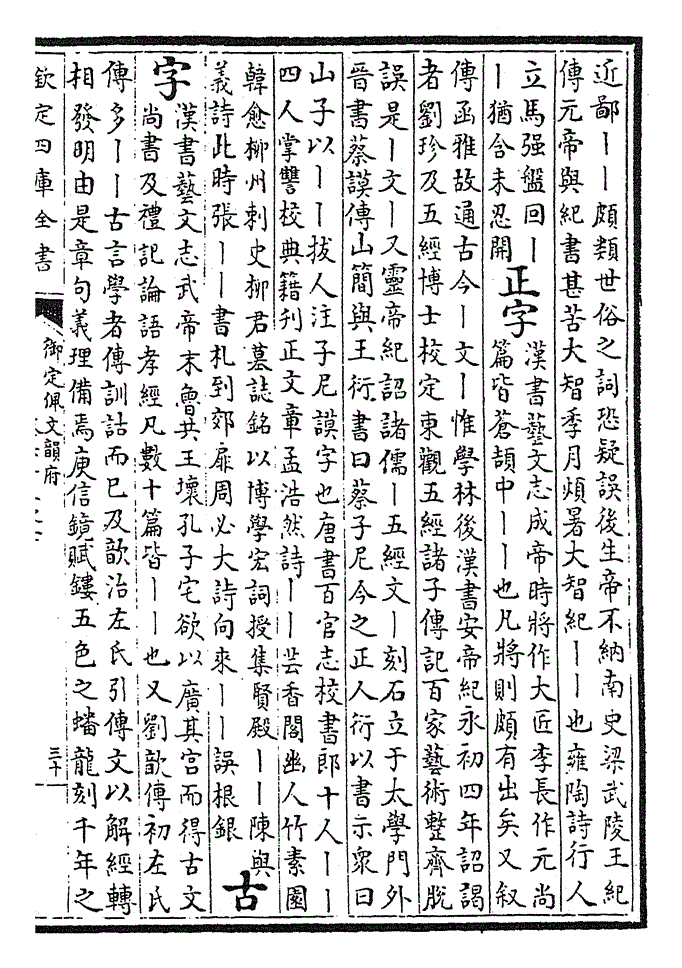 近鄙丨丨頗類世俗之詞恐疑誤後生帝不納南史梁武陵王紀
傳元帝與紀書甚苦大智季月煩暑大智紀丨丨也雍陶詩行人
立馬强盤回丨
丨猶含未忍開
正字
漢書藝文志成帝時將作大匠李長作元尚
篇皆蒼頡中丨丨也凡將則頗有出矣又叙
傳函雅故通古今丨文丨惟學林後漢書安帝紀永初四年詔謁
者劉珍及五經博士校定東觀五經諸子傳記百家藝術整齊脫
誤是丨文丨又靈帝紀詔諸儒丨五經文丨刻石立于太學門外
晉書蔡謨傳山簡與王衍書曰蔡子尼今之正人衍以書示衆曰
山子以丨丨拔人注子尼謨字也唐書百官志校書郎十人丨丨
四人掌讐校典籍刋正文章孟浩然詩丨丨芸香閣幽人竹素園
韓愈柳州刺史柳君墓誌銘以博學宏詞授集賢殿丨丨陳與
義詩此時張丨丨書札到郊扉周必大詩向來丨丨誤根銀
古
字
漢書藝文志武帝末魯共王壞孔子宅欲以廣其宮而得古文
尚書及禮記論語孝經凡數十篇皆丨丨也又劉歆傳初左氏
傳多丨丨古言學者傳訓詁而已及歆治左氏引傳文以解經轉
相發明由是章句義理備焉庾信鏡賦鏤五色之蟠龍刻千年之
欽定四庫全書
御定佩文韻府
三十